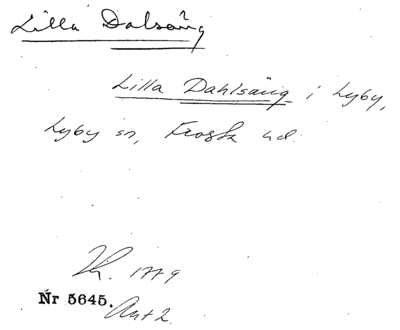 Lilla Dalsäng
Lilla Dahlsäng i Lyby,
Lyby sn, Frosta hd.
1779
Nr 5645.
Akt 2.